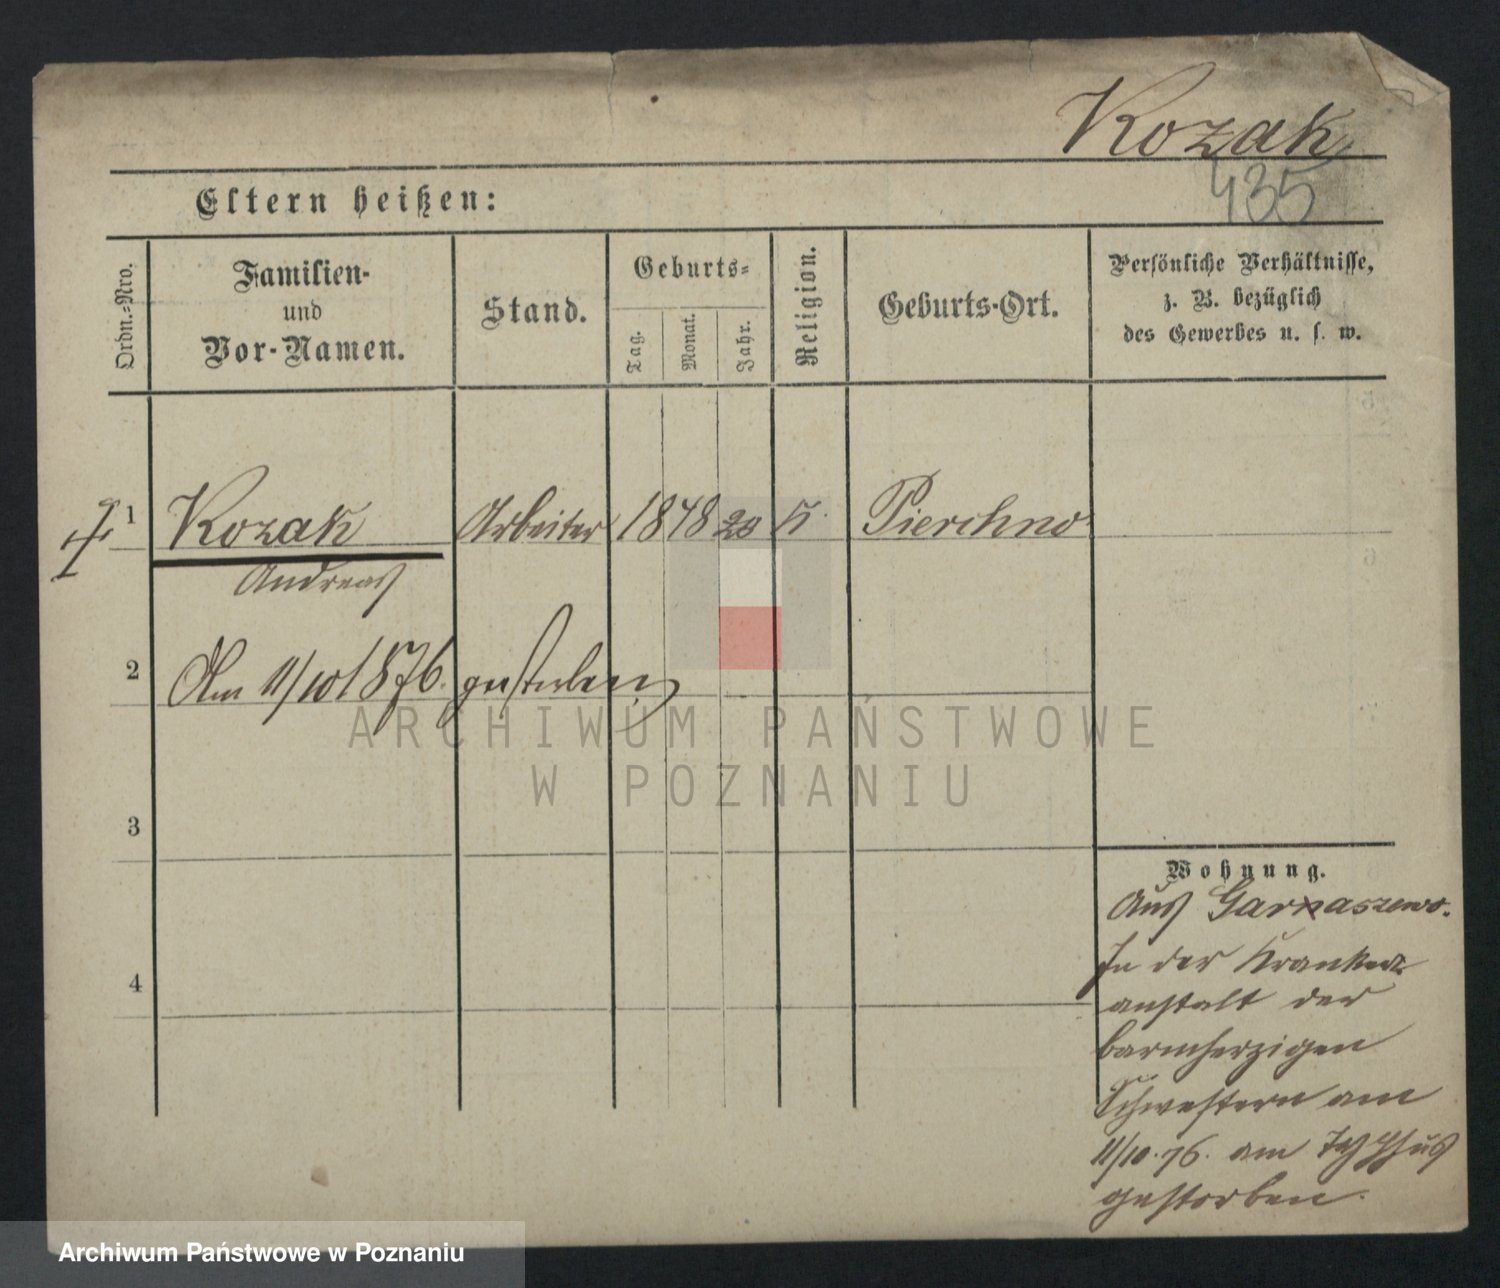 Kozak
435
Eltern heißen:
Ordn.-Nro.
Familien-
und
Vor-Namen.
Stand.
Geburts-
Tag.
Monat.
Jahr.
Religion.
Geburts-Ort.
Persönliche Verhältnisse,
z. B. bezüglich
des Gewerbes u. s. w.
1 Kozak Arbeiter 1848 Pierchno
Andreas
2 Am 11/10 1876. gestorben
3
4
Wohnung.
Aus Garaszewo.
In der Kranken
anstalt der
barmherzigen
Schwestern am
11/10.76. am Typhus
gestorben.
ARCHIWUM PAŃSTWOWE
W POZNANIU
Archiwum Państwowe w Poznaniu